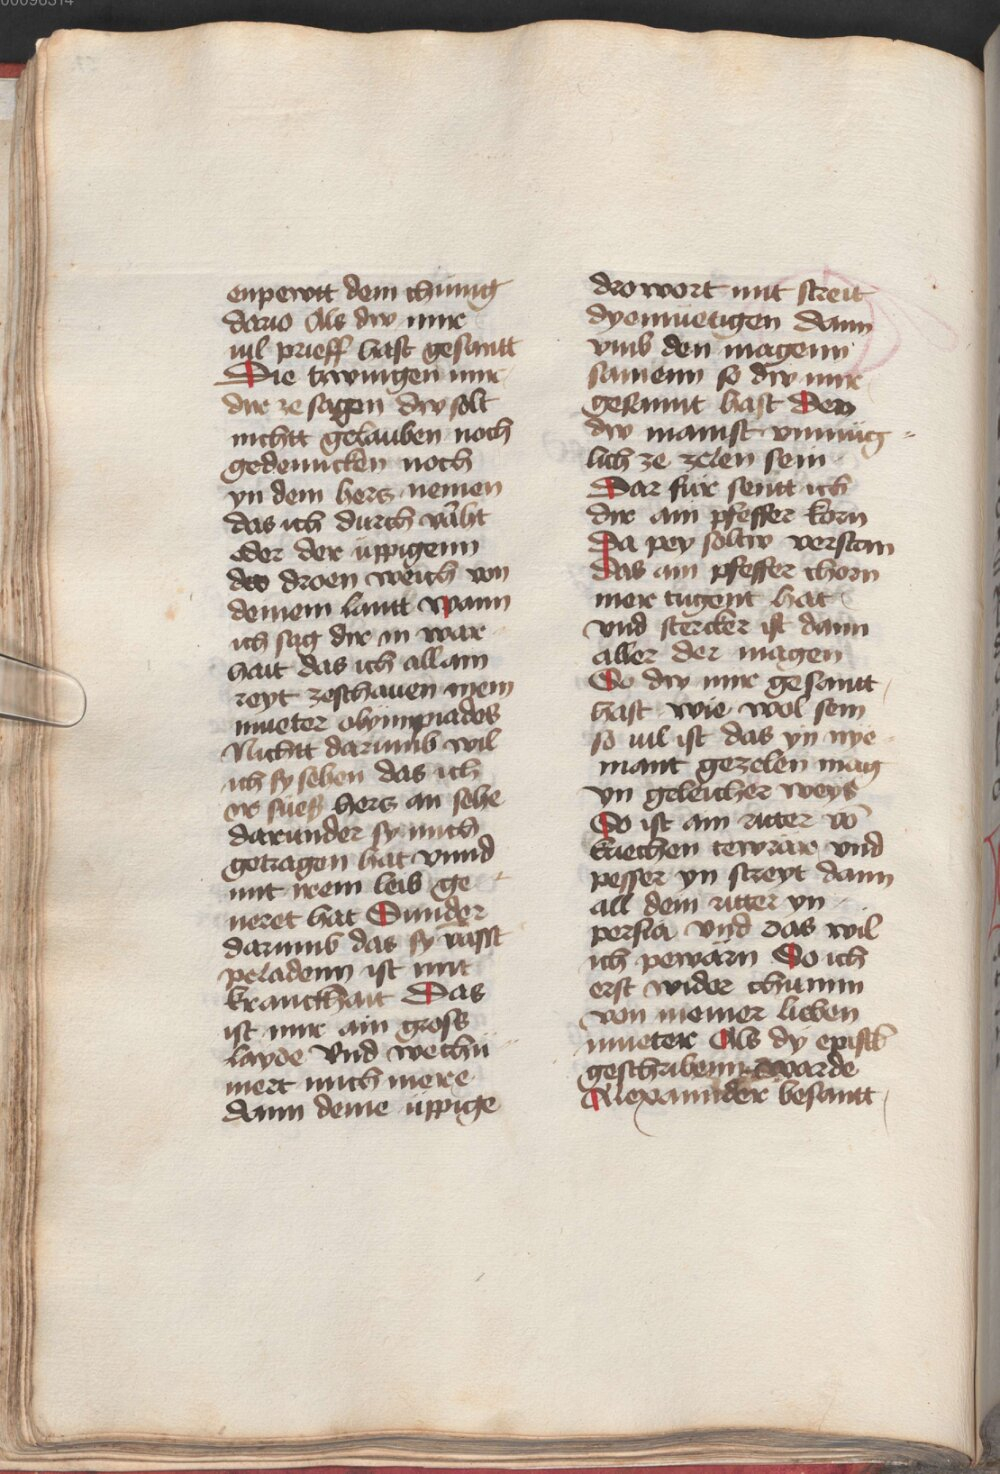 enpewtt dem chünig
dario Als dw mir
uil prieff hast gesantt
Die twingen mir
dir ze sagen dw solt
nichtt gelauben noch
gedenncken noch
yn dem hercz nemen
das ich durch vächt
oder der üppigenn
deo droen weich von
deinem lantt wann
ich sag dir in war
hait das ich allain
reyt zeschauen mein
mueter olympiades
Nichtt darumb wil
ich sy sehen das ich
ir süeß hercz an sehe
darunder sy mich
getragen hat vnnd
mit irem leib ge
neret hat Sunder
darumb das sy vasst
peladenn ist mit
kranckhait Das
ist mir ain gross
layde Vnd wechü
mert mich mere
dann deine üppige
dro wort mit streit
dyemuetigen dann
vmb den magenn
samenn so dw mir
gesannt hast Den
dw mainst vnmüg
lich ze zelen sein
Dar für sentt ich
dir ain pfeffer korn
Da pey soltw verstan
das ain pfeffer chorn
mer tugent hat
vnd stercker ist dann
aller der magen
So dw mir gesantt
hast wie wol sein
so uil ist das yn nye
mant gezelen mag
yn geleicher weys
So ist ain ritter vō
kriechen tewrär vnd
pesser yn streyt dann
all dein ritter yn
persia vnd das wil
ich pewärn So ich
erst wider chumm
von meiner lieben
mueter Als dy epistl
geschribenn warde
Alexannder besantt